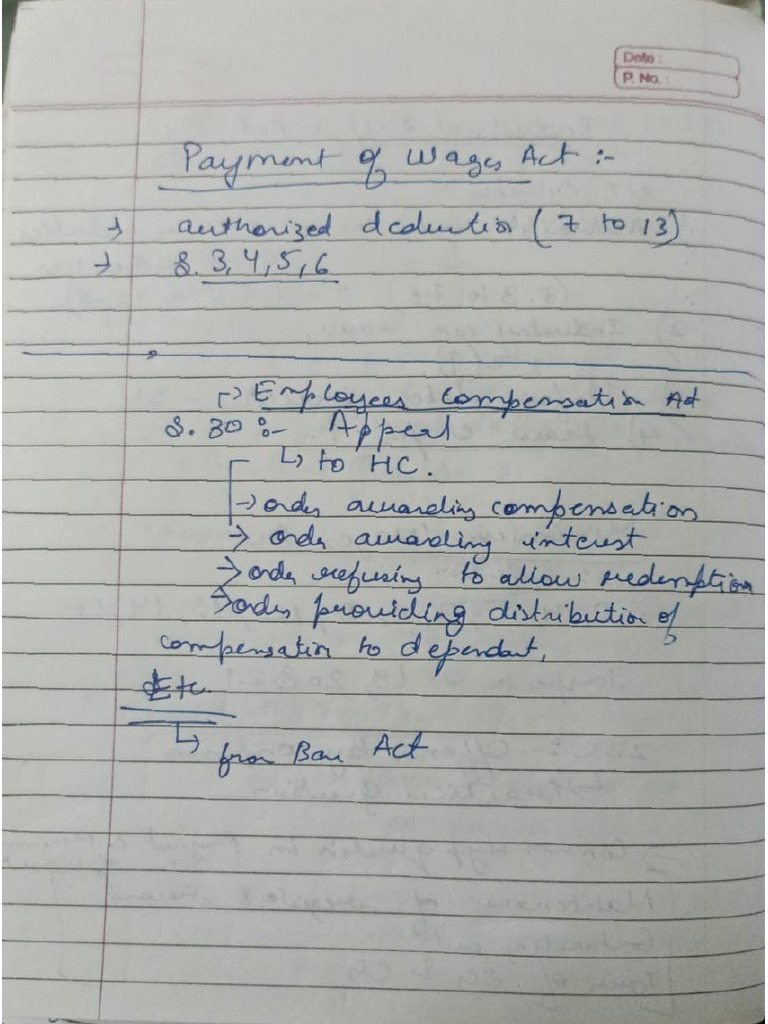 Date :
P. No. :
Payment of Wages Act :-
→ authorized deduction ( 7 to 13)
→ S. 3, 4, 5, 6
→ Employees Compensation Act
S. 30 :- Appeal
↳ to HC.
→ order awarding compensation
→ order awarding interest
→ order refusing to allow redemption
→ order providing distribution of
compensation to dependant,
Etc.
↳ from Bare Act